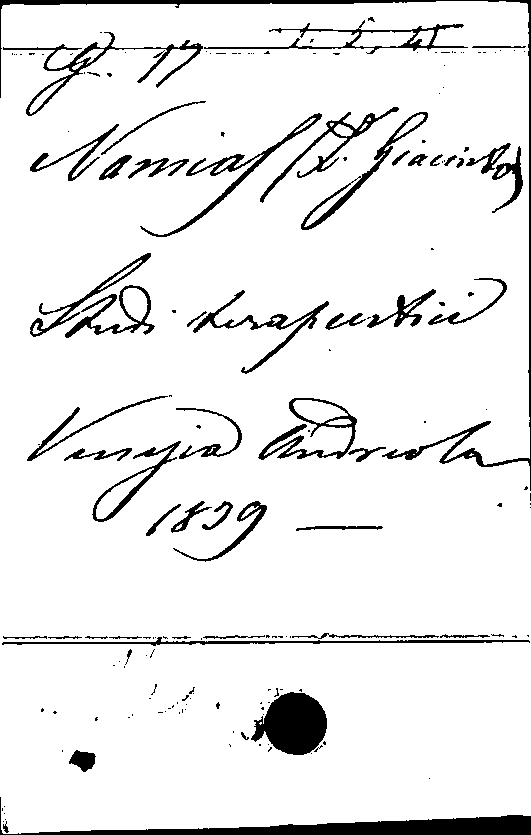 G. 17 1. 5. 41
Namias (D.r Giacinto)
Studi terapeutici
Venezia Andreola
1839 —